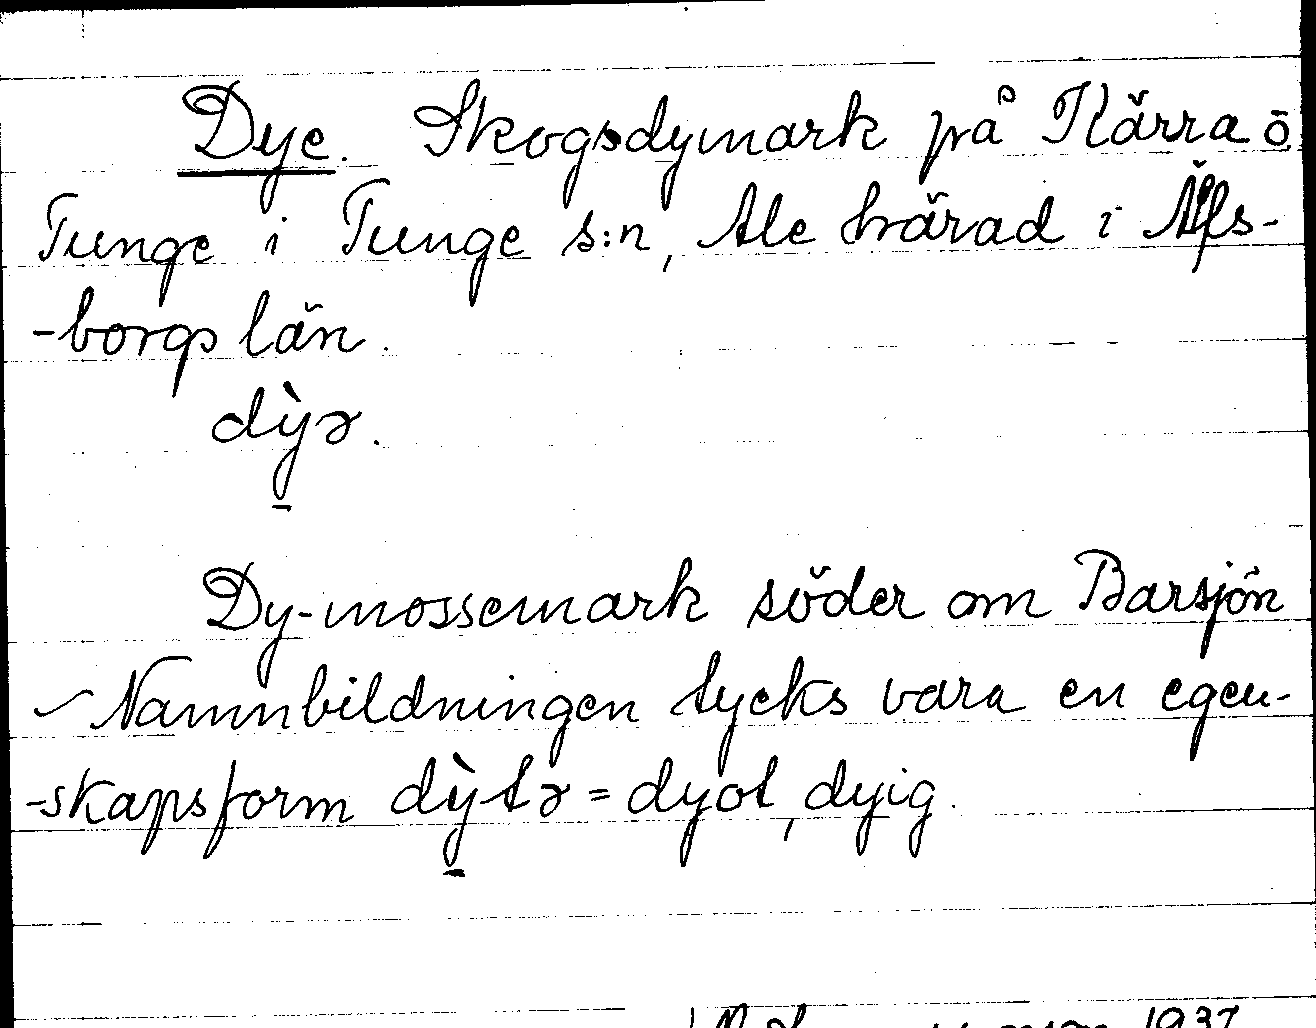 Dye. Skogsdymark på Kärra ö.
Tunge i Tunge s:n, Ale härad i Älfs-
-borgs län.
dỳ̠ə.
Dy-mossemark söder om Barsjön
Namnbildningen tycks vara en egen-
-skapsform dỳ̠tə = dyot, dyig.
1937